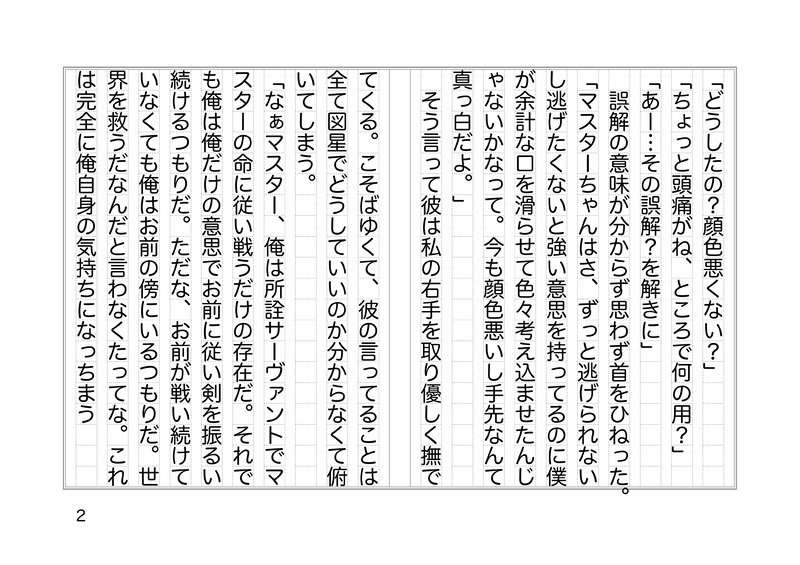 「どうしたの？顔色悪くない？」
「ちょっと頭痛がね、ところで何の用？」
「あー…その誤解？を解きに」
　誤解の意味が分からず思わず首をひねった。
「マスターちゃんはさ、ずっと逃げられない
し逃げたくないと強い意思を持ってるのに僕
が余計な口を滑らせて色々考え込ませたんじ
ゃないかなって。今も顔色悪いし手先なんて
真っ白だよ。」
　そう言って彼は私の右手を取り優しく撫で
てくる。こそばゆくて、彼の言ってることは
全て図星でどうしていいのか分からなくて俯
いてしまう。
「なぁマスター、俺は所詮サーヴァントでマ
スターの命に従い戦うだけの存在だ。それで
も俺は俺だけの意思でお前に従い剣を振るい
続けるつもりだ。ただな、お前が戦い続けて
いなくても俺はお前の傍にいるつもりだ。世
界を救うだなんだと言わなくたってな。これ
は完全に俺自身の気持ちになっちまう
2